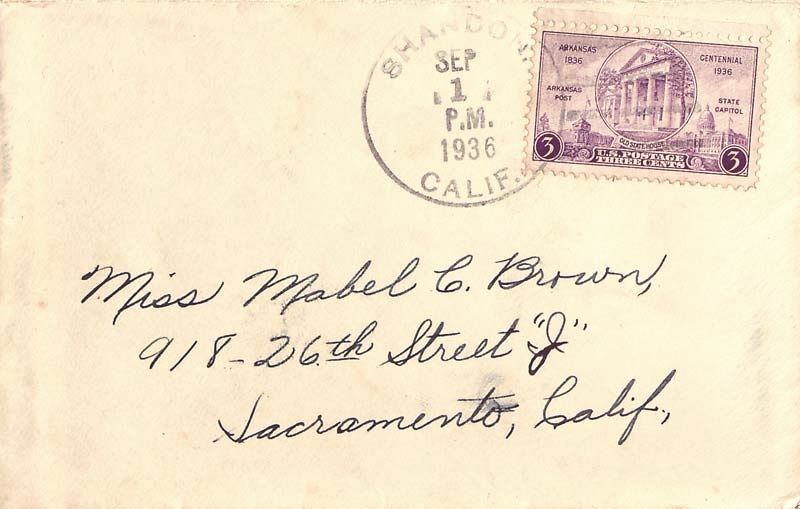 SHANDON,
SEP
1
P.M.
1936
CALIF.
ARKANSAS
1836
CENTENNIAL
1936
ARKANSAS
POST
STATE
CAPITOL
OLD STATE HOUSE
3
U.S. POSTAGE
THREE CENTS
3
Miss Mabel C. Brown,
918-26th Street "J"
Sacramento, Calif.,